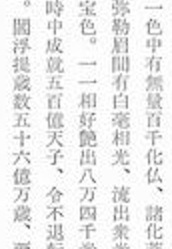 一色中有無量百千化仏、諸化菩
弥勒眉間有白毫相光、流出衆
宝色。一一相好艶出八万四千
時中成就五百億天子、令不退転
。閻浮提歳数五十六億万歳、